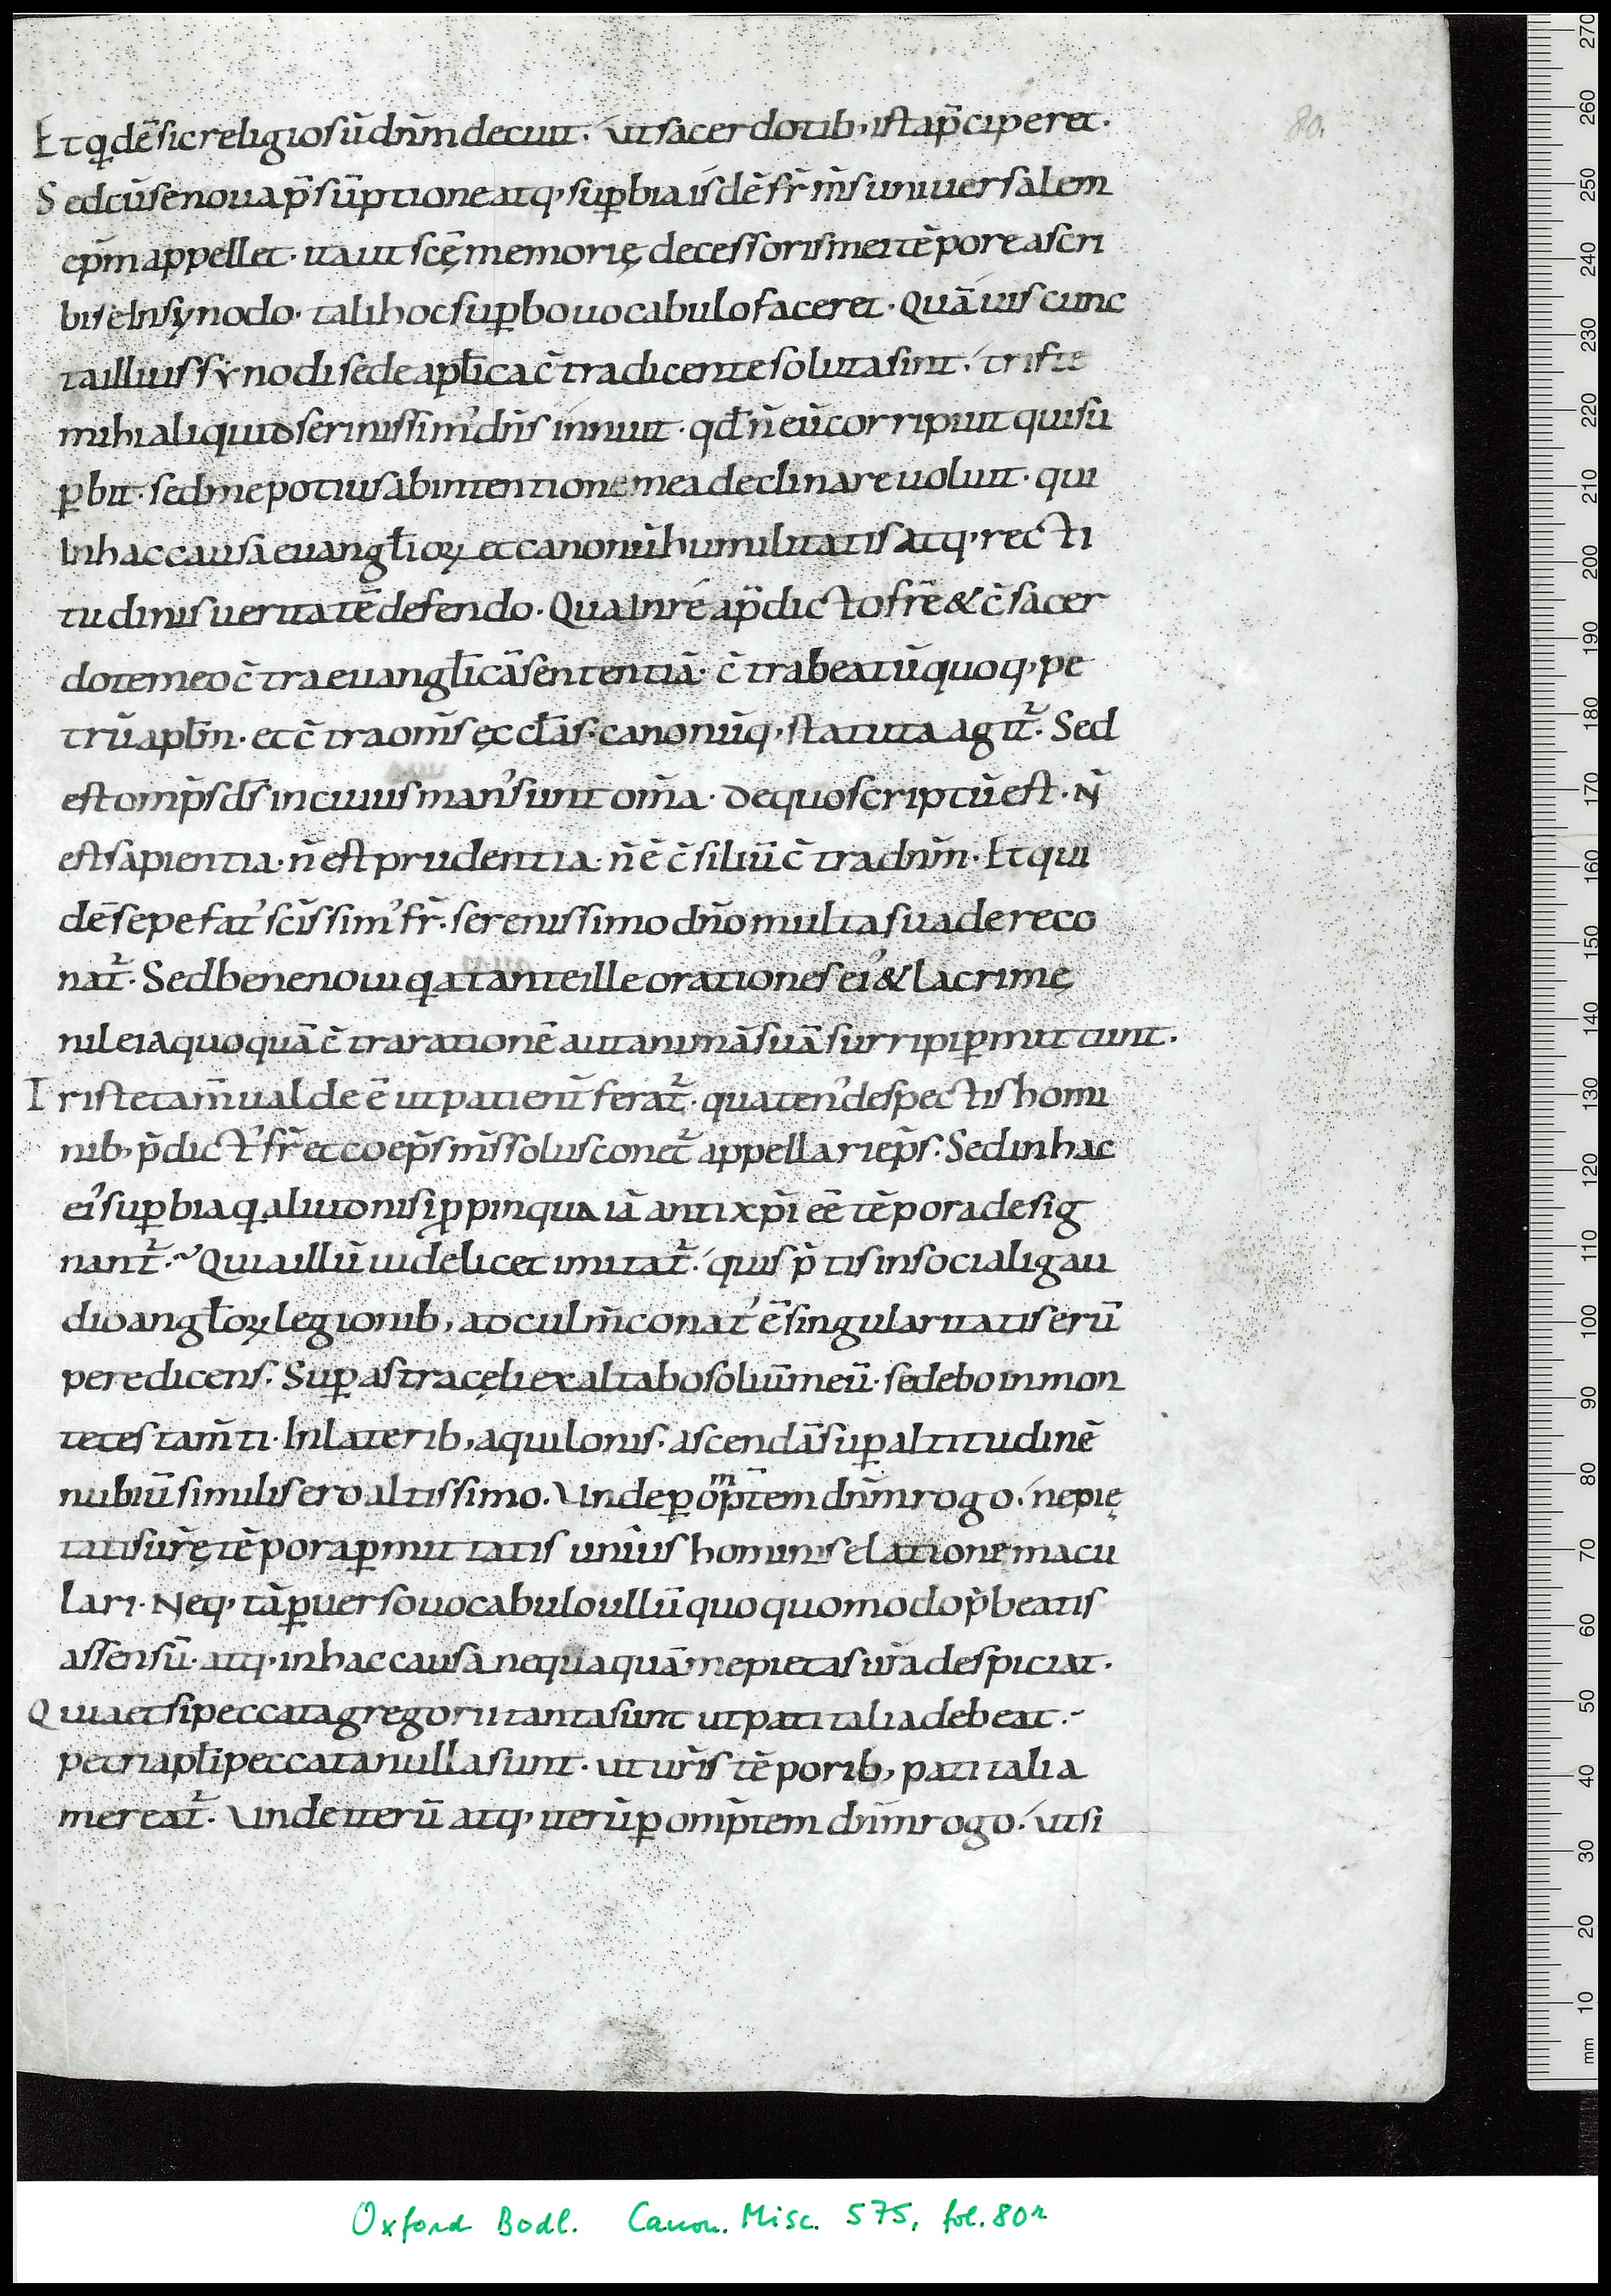 80.
Et qdē sic religiosū dn̄m decuit. Ut sacerdotib; ista p̄ciperet.
Sed cū se noua p̄sūptione atq; suꝑbia isdē fr̄ ms̄ uniuersalem
ep̄m appellet. ita ut scę̄ memorię decessoris mei tēpore ascri
bi se In synodo. tali hoc suꝑbo uocabulo faceret. Quāuis cunc
ta illius synodi sede apl̄ica c̄tradicente soluta sint. triste
mihi aliquid serinissim' dn̄s innuit. qd̄ n̄ eū corripuit qui su
ꝑbit. sed me potius ab intentione mea declinare uoluit. qui
In hac causa euangl̄ioꝝ et canonū humilitatis atq; recti
tudinis ueritatē defendo. Qua In re a p̄dicto fr̄e & c̄sacer
dote meo c̄tra euangl̄icā sententiā. c̄tra beatū quoq; pe
trū apl̄m. et c̄tra om̄s ęccl̄as. canonūq; statuta agit̄. Sed
est omp̄s ds̄ in cuius man' sunt om̄a. de quo scriptū est. N̄
est sapientia. n̄ est prudentia. n̄ ē c̄siliū c̄tra dn̄m. Et qui
dē sepefat' scīssim' fr̄. serenissimo dn̄o multa suadere co
nat̄. Sed bene noui qa tante ille orationes ei' & lacrimę
nil ei a quoquā c̄tra rationē aut animā suā surripi ꝑmittunt.
Triste tam̄ ualde ē ut patient̄ ferat̄. quaten' despectis homi
nib; p̄dict' fr̄ et coep̄s ms̄ solus conet̄ appellari ep̄s. Sed in hac
ei' suꝑbia q aliud nisi ꝓpinqua iā antixp̄i eē tēpora desig
nant̄. Quia illū uidelicet imitat̄. quis p̄tis in sociali gau
dio angl̄oꝝ legionib; ad culm̄ conat' ē singularitatis erū
pere dicens. Suꝑ astra cęli exaltabo soliū meū. sedebo in mon
te testam̄ti. In laterib; aquilonis. ascendā suꝑ altitudinē
nubiū similis ero altissimo. Unde ꝑ omp̄tem dn̄m rogo. ne pię
tatis ur̄ę tēpora ꝑmittatis unius hominis elatione macu
lari. Neq; tā ꝑuerso uocabulo ullū quoquomodo p̄beatis
assensū. atq; in hac causa nequaquā me pietas ur̄a despiciat.
Quia etsi peccata gregorii tanta sunt ut pati talia debeat.
petri apl̄i peccata nulla sunt. ut ur̄is tēporib; pati talia
mereat̄. Unde iterū atq; iterū ꝑ omp̄tem dn̄m rogo. ut si
Oxford Bodl. Canon. Misc. 575, fol. 80r